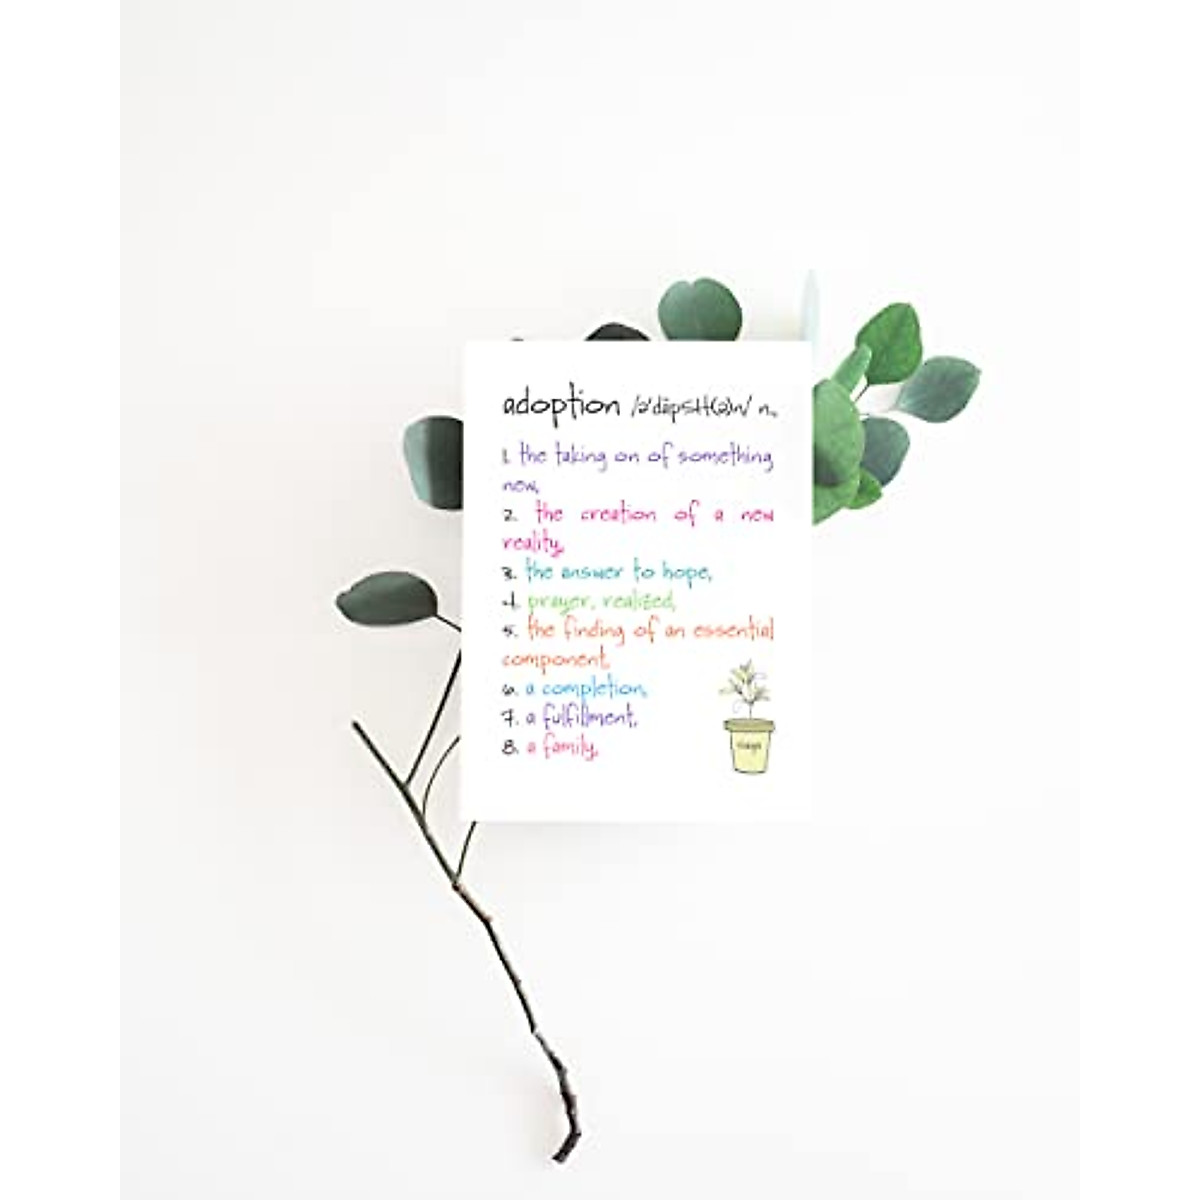 adoption /ə'däpSH(ə)n/ n.
1. the taking on of something
new.
2. the creation of a new
reality.
3. the answer to hope.
4. prayer, realized.
5. the finding of an essential
component.
6. a completion.
7. a fulfillment.
8. a family.